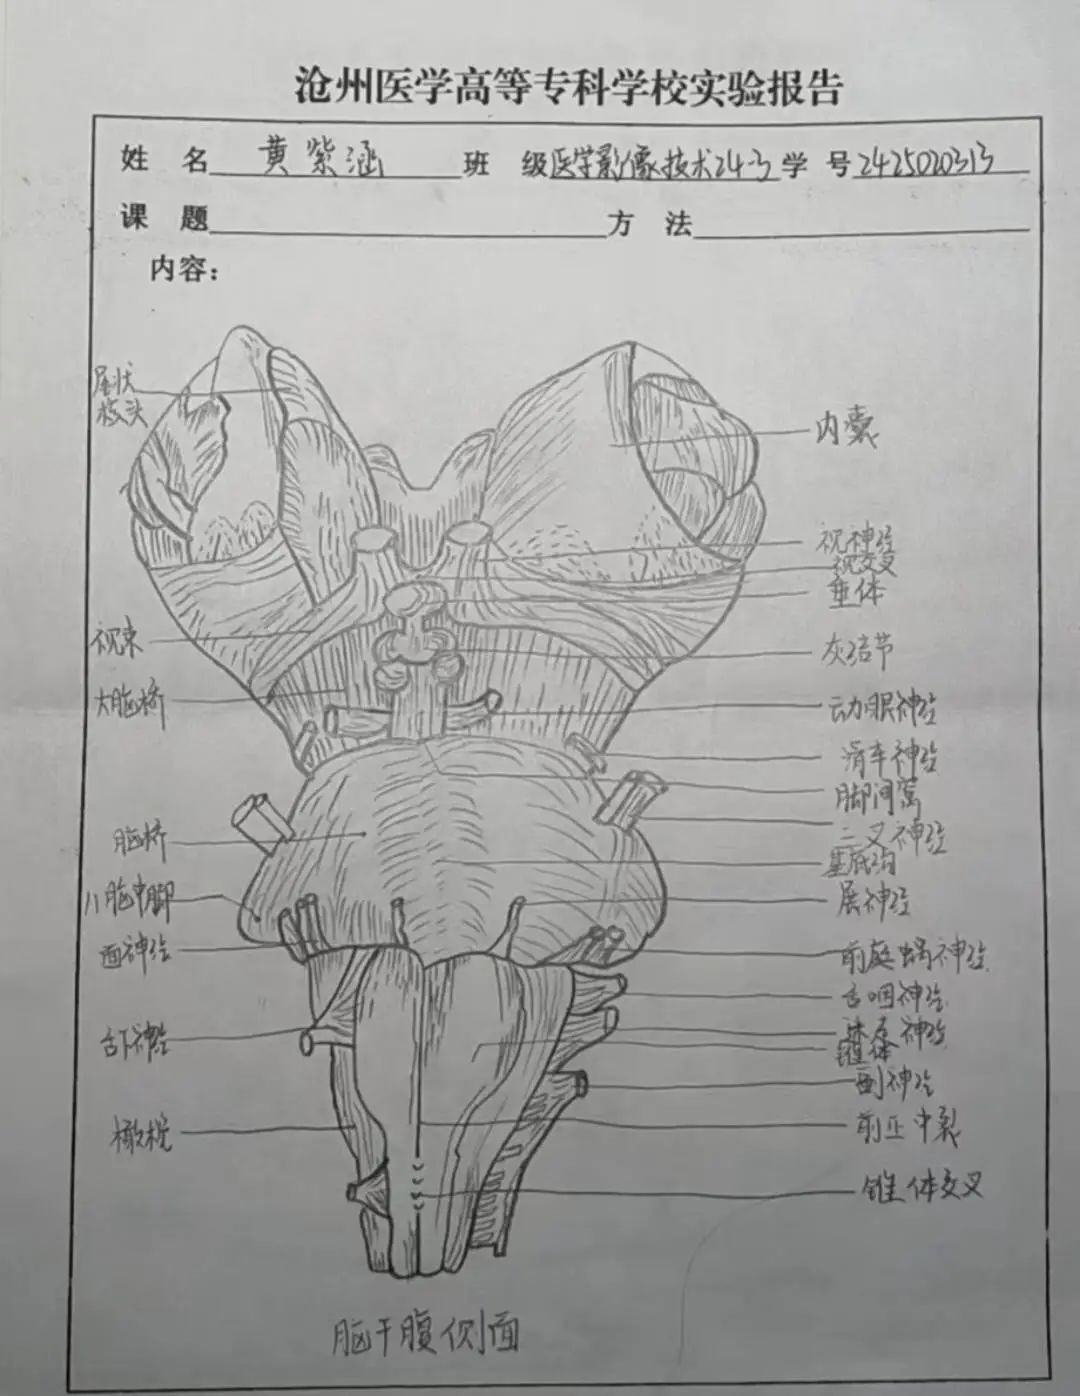 沧州医学高等专科学校实验报告
姓 名 黄紫涵 班 级 医学影像技术24-3 学 号 2425020313
课 题 方 法
内容：
尾状
核头
内囊
视神经
视交叉
垂体
视束
灰结节
大脑桥
动眼神经
滑车神经
脚间窝
三叉神经
脑桥
基底沟
小脑中脚
展神经
面神经
前庭蜗神经
舌咽神经
舌下神经
迷走神经
锥体
副神经
橄榄
前正中裂
锥体交叉
脑干腹侧面